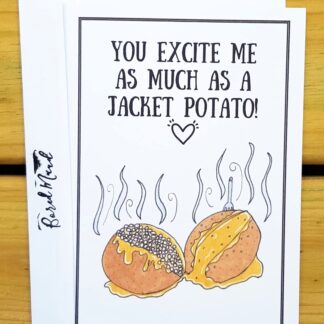 YOU EXCITE ME
AS MUCH AS A
JACKET POTATO!